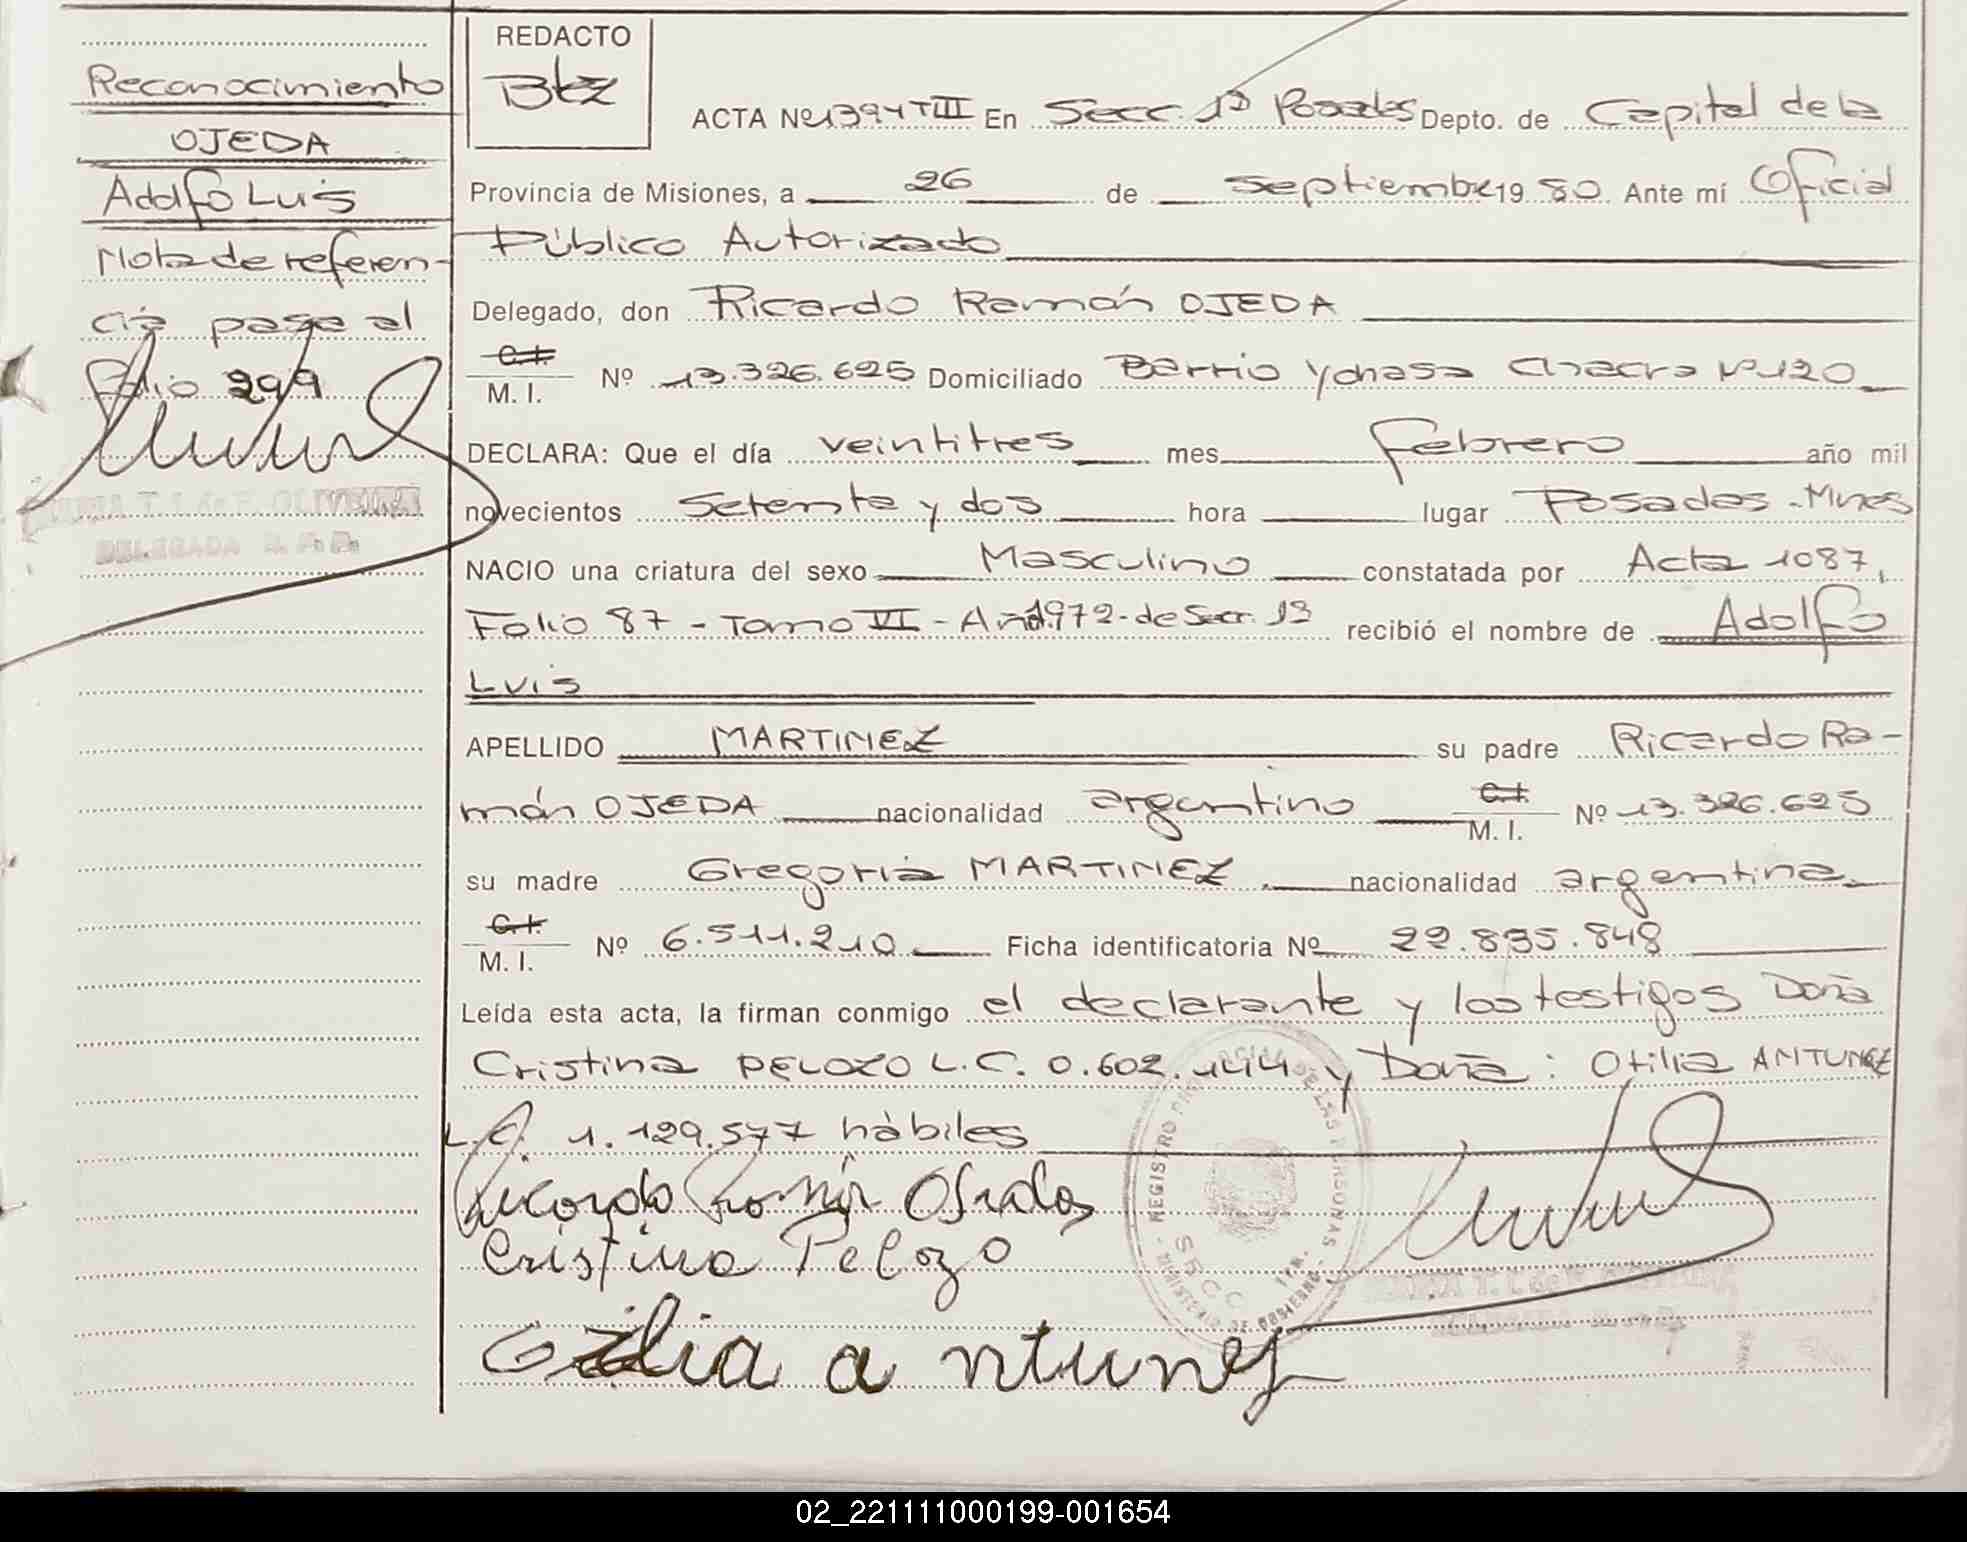 Reconocimiento
OJEDA
Adolfo Luis
Nota de referen-
cia pasa al
Folio 299
DELEGADA R. P. P.
REDACTO
Btz
ACTA Nº 1394 TIII En Secc. 1ª Posadas Depto. de Capital de la
Provincia de Misiones, a 26 de Septiembre 19 80. Ante mí Oficial
Público Autorizado
Delegado, don Ricardo Ramón OJEDA
C.I.
M. I. Nº 13.326.625 Domiciliado Barrio Yohasa Chacra Nº 120
DECLARA: Que el día veintitres mes Febrero año mil
novecientos Setenta y dos hora lugar Posadas - Mnes
NACIO una criatura del sexo Masculino constatada por Acta 1087,
Folio 87 - Tomo VI - Año 1972 - de Secc. 1ª recibió el nombre de Adolfo
Luis
APELLIDO MARTINEZ su padre Ricardo Ra-
món OJEDA nacionalidad argentino C.I.
M. I. Nº 13.326.625
su madre Gregoria MARTINEZ nacionalidad argentina
C.I.
M. I. Nº 6.511.210 Ficha identificatoria Nº 22.835.848
Leída esta acta, la firman conmigo el declarante y los testigos Doña
Cristina PELOZO L.C. 0.602.444 y Doña: Otilia ANTUNEZ
L.C. 1.129.577 hábiles
Ricardo Ramón Ojeda
Cristina Pelozo
Otilia antunez
REGISTRO PROVINCIAL DE LAS PERSONAS
MINISTERIO DE GOBIERNO
SECC. 1ra.
02_221111000199-001654